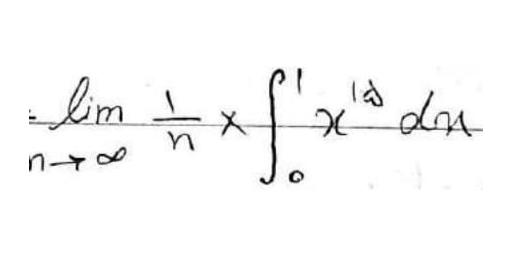 = lim n→∞ 1/n × ∫₀¹ x dx